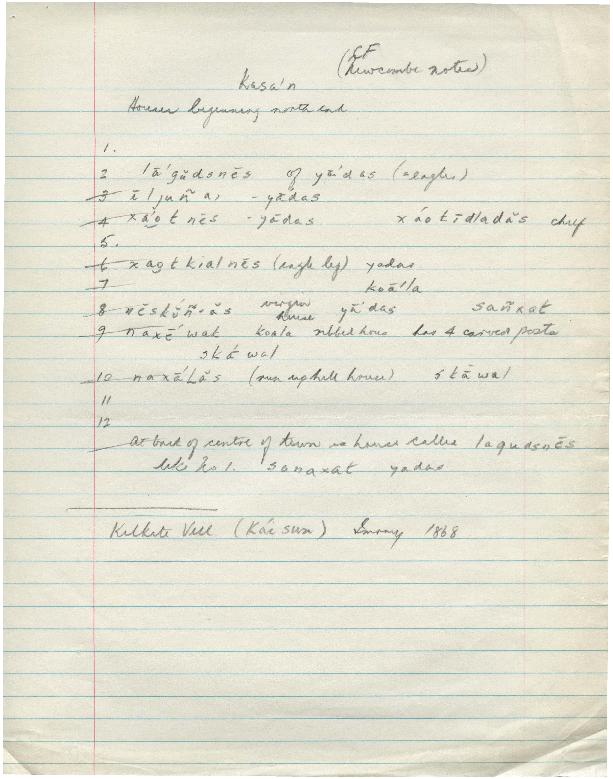 CF
(Newcombe notes)
Kasa'n
Houses beginning north end
1.
2 lā'gŭdsnēs of yā'das (eagles)
3 ēljuña, - yādas
4 xáotnēs - yādas xáotīdladăs chief
5.
6 xaotkialnēs (eagle leg) yadas
7 koā'la
8 nēskŭñ·ăs house yā'das sañxat
9 naxē'wat koala ribbed house has 4 carved posts
skáwal
10 naxá'Lăs (run uphill house) skāwal
11
12
At back of centre of town is house called lagudsnēs
like No 1. sanaxat yadas
Kilkite Vill (Káisun) 1868